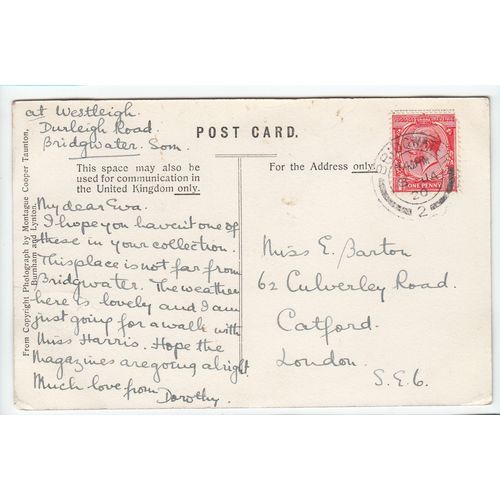 at Westleigh.
Durleigh Road.
Bridgwater. Som.
POST CARD.
This space may also be
used for communication in
the United Kingdom only.
For the Address only.
My dear Eva.
I hope you haven't one of
these in your collection.
This place is not far from
Bridgwater. The weather
here is lovely and I am
just going for a walk with
Miss Harris. Hope the
Magazines are going alright.
Much love from Dorothy.
Miss E. Barton
62 Culverley Road.
Catford.
London.
S.E.6.
From Copyright Photograph by Montague Cooper Taunton,
Burnham and Lynton.
ONE PENNY
BRIDGWATER
JA
20
2